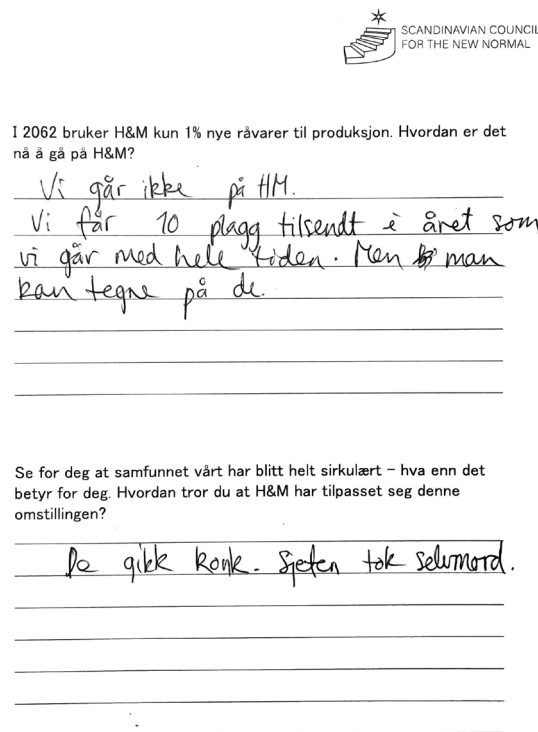 SCANDINAVIAN COUNCIL
FOR THE NEW NORMAL
I 2062 bruker H&M kun 1% nye råvarer til produksjon. Hvordan er det
nå å gå på H&M?
Vi går ikke på HM.
Vi får 10 plagg tilsendt i året som
vi går med hele tiden. Men man
kan tegne på de.
Se for deg at samfunnet vårt har blitt helt sirkulært – hva enn det
betyr for deg. Hvordan tror du at H&M har tilpasset seg denne
omstillingen?
De gikk konk. Sjefen tok selvmord.